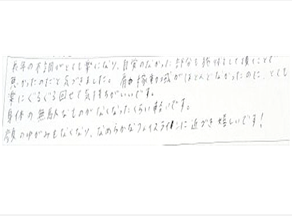 長年の不調がとても楽になり、自覚のなかった部分も施術をして頂くことで
悪かったのだと気づきました。肩の稼動域がほとんどなかったのに、とても
楽にぐるぐる回せて気持ちがいいです。
身体の無駄なものがなくなったくらい軽いです。
顔のゆがみもなくなり、なめらかなフェイスラインに近づき嬉しいです!